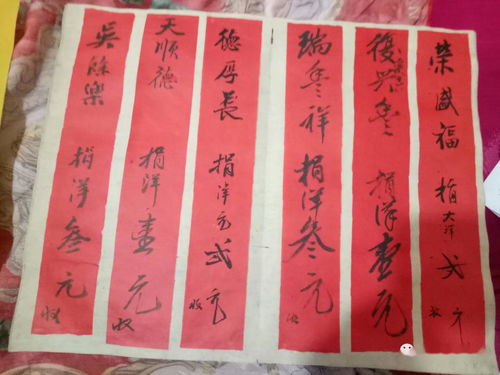 榮盛福 捐大洋弍元 收
復兴豊 捐洋壹元
瑞豊祥 捐洋叄元 收
德厚長 捐洋元弍元 收
天順德 捐洋壹元 收
吳餘樂 捐洋叄元 收